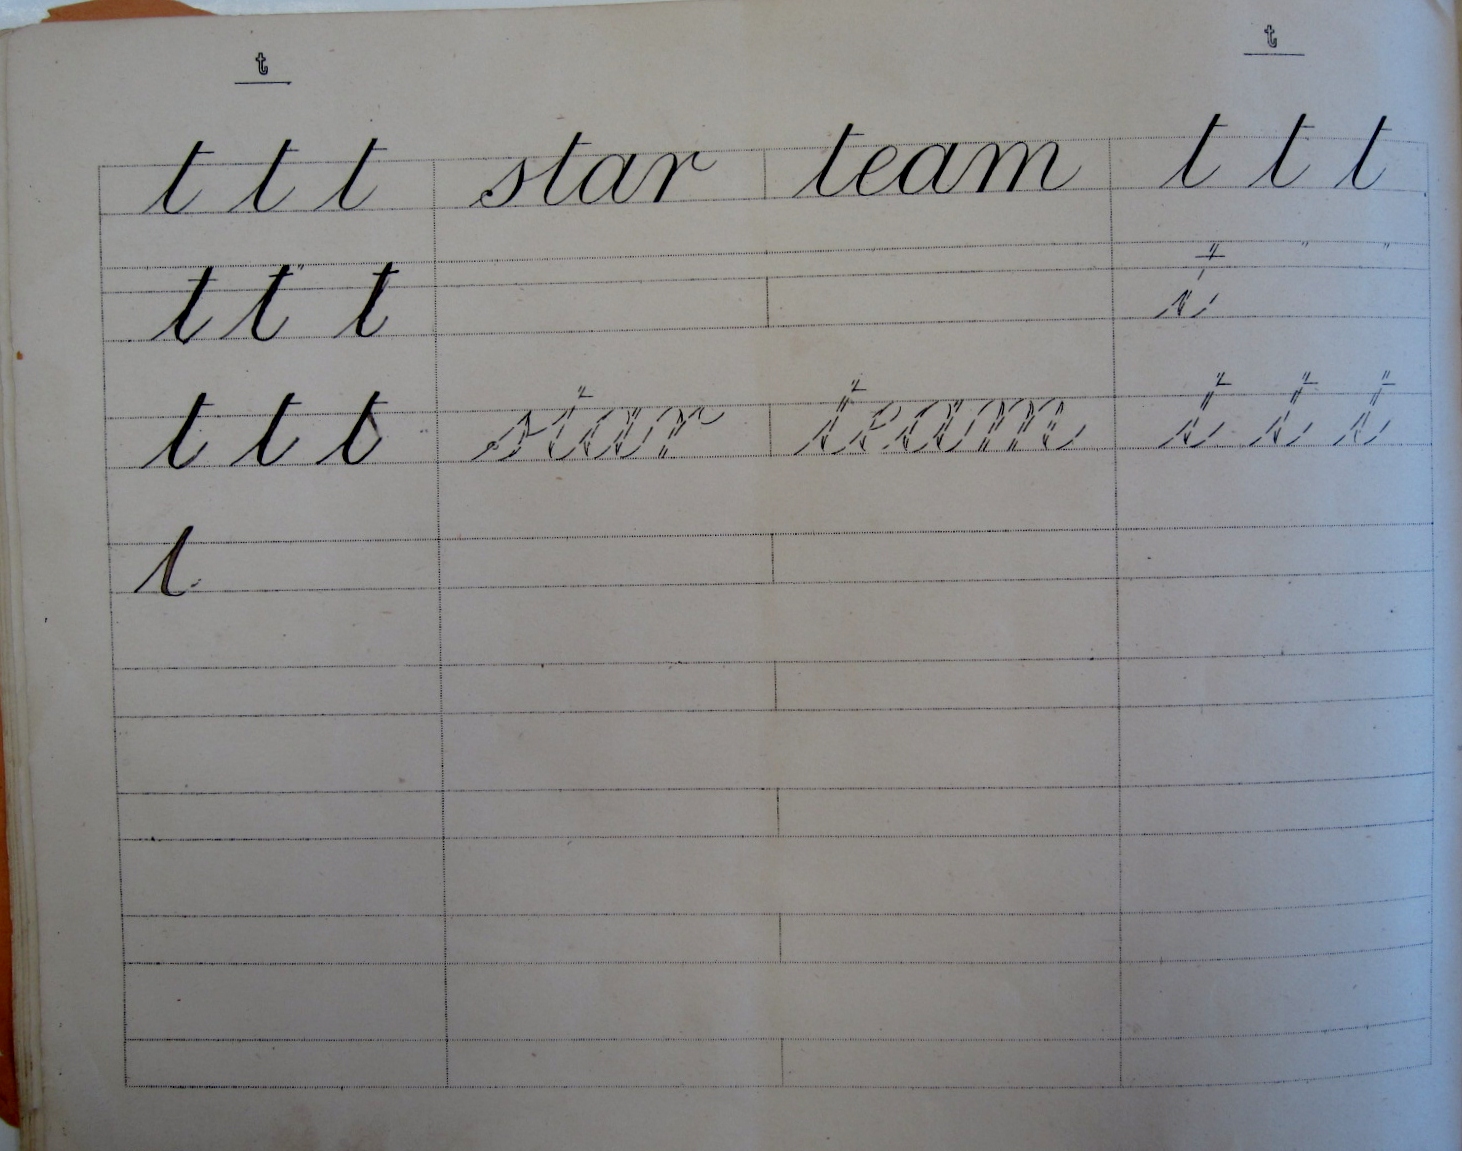 t t
t t t star team t t t
t t t t
t t t star team t t t
t